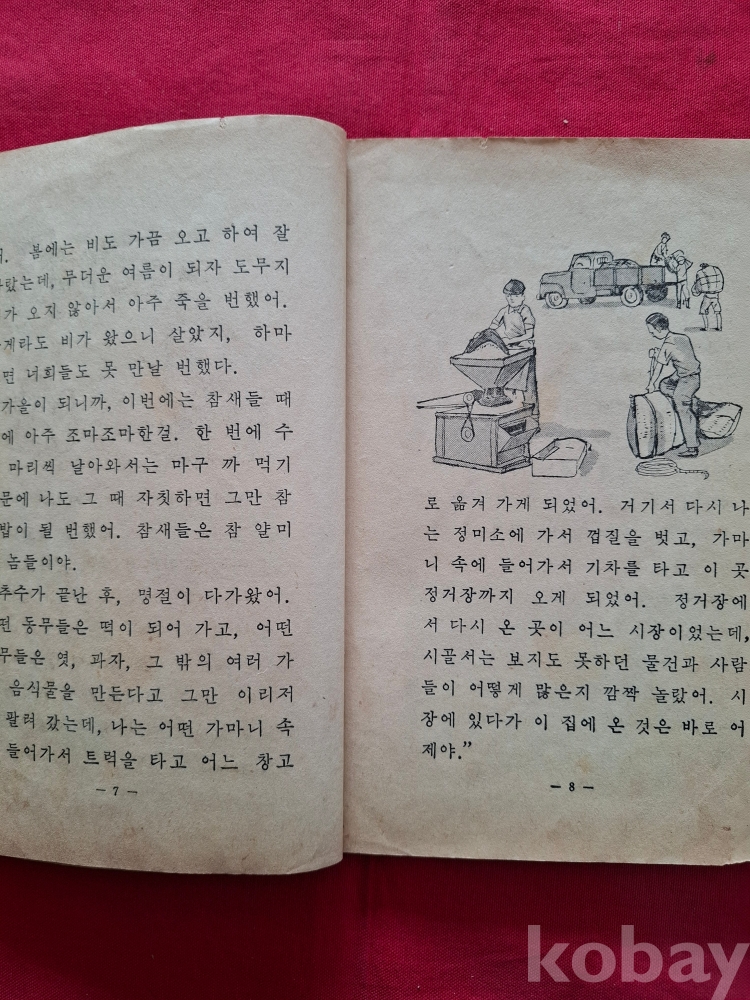 봄에는 비도 가끔 오고 하여 잘
무더운 여름이 되자 도무지
가 오지 않아서 아주 죽을 번했어.
비가 왔으니 살았지, 하마
면 너희들도 못 만날 번했다.
가을이 되니까, 이번에는 참새들 때
에 아주 조마조마한걸. 한 번에 수
마리씩 날아와서는 마구 까 먹기
문에 나도 그 때 자칫하면 그만 참
밥이 될 번했어. 참새들은 참 얄미
놈들이야.
추수가 끝난 후, 명절이 다가왔어.
떤 동무들은 떡이 되어 가고, 어떤
무들은 엿, 과자, 그 밖의 여러 가
음식물을 만든다고 그만 이리저
팔려 갔는데, 나는 어떤 가마니 속
들어가서 트럭을 타고 어느 창고
— 7 —
로 옮겨 가게 되었어. 거기서 다시 나
는 정미소에 가서 껍질을 벗고, 가마
니 속에 들어가서 기차를 타고 이 곳
정거장까지 오게 되었어. 정거장에
서 다시 온 곳이 어느 시장이었는데,
시골서는 보지도 못하던 물건과 사람
들이 어떻게 많은지 깜짝 놀랐어. 시
장에 있다가 이 집에 온 것은 바로 어
제야.”
— 8 —
kobay